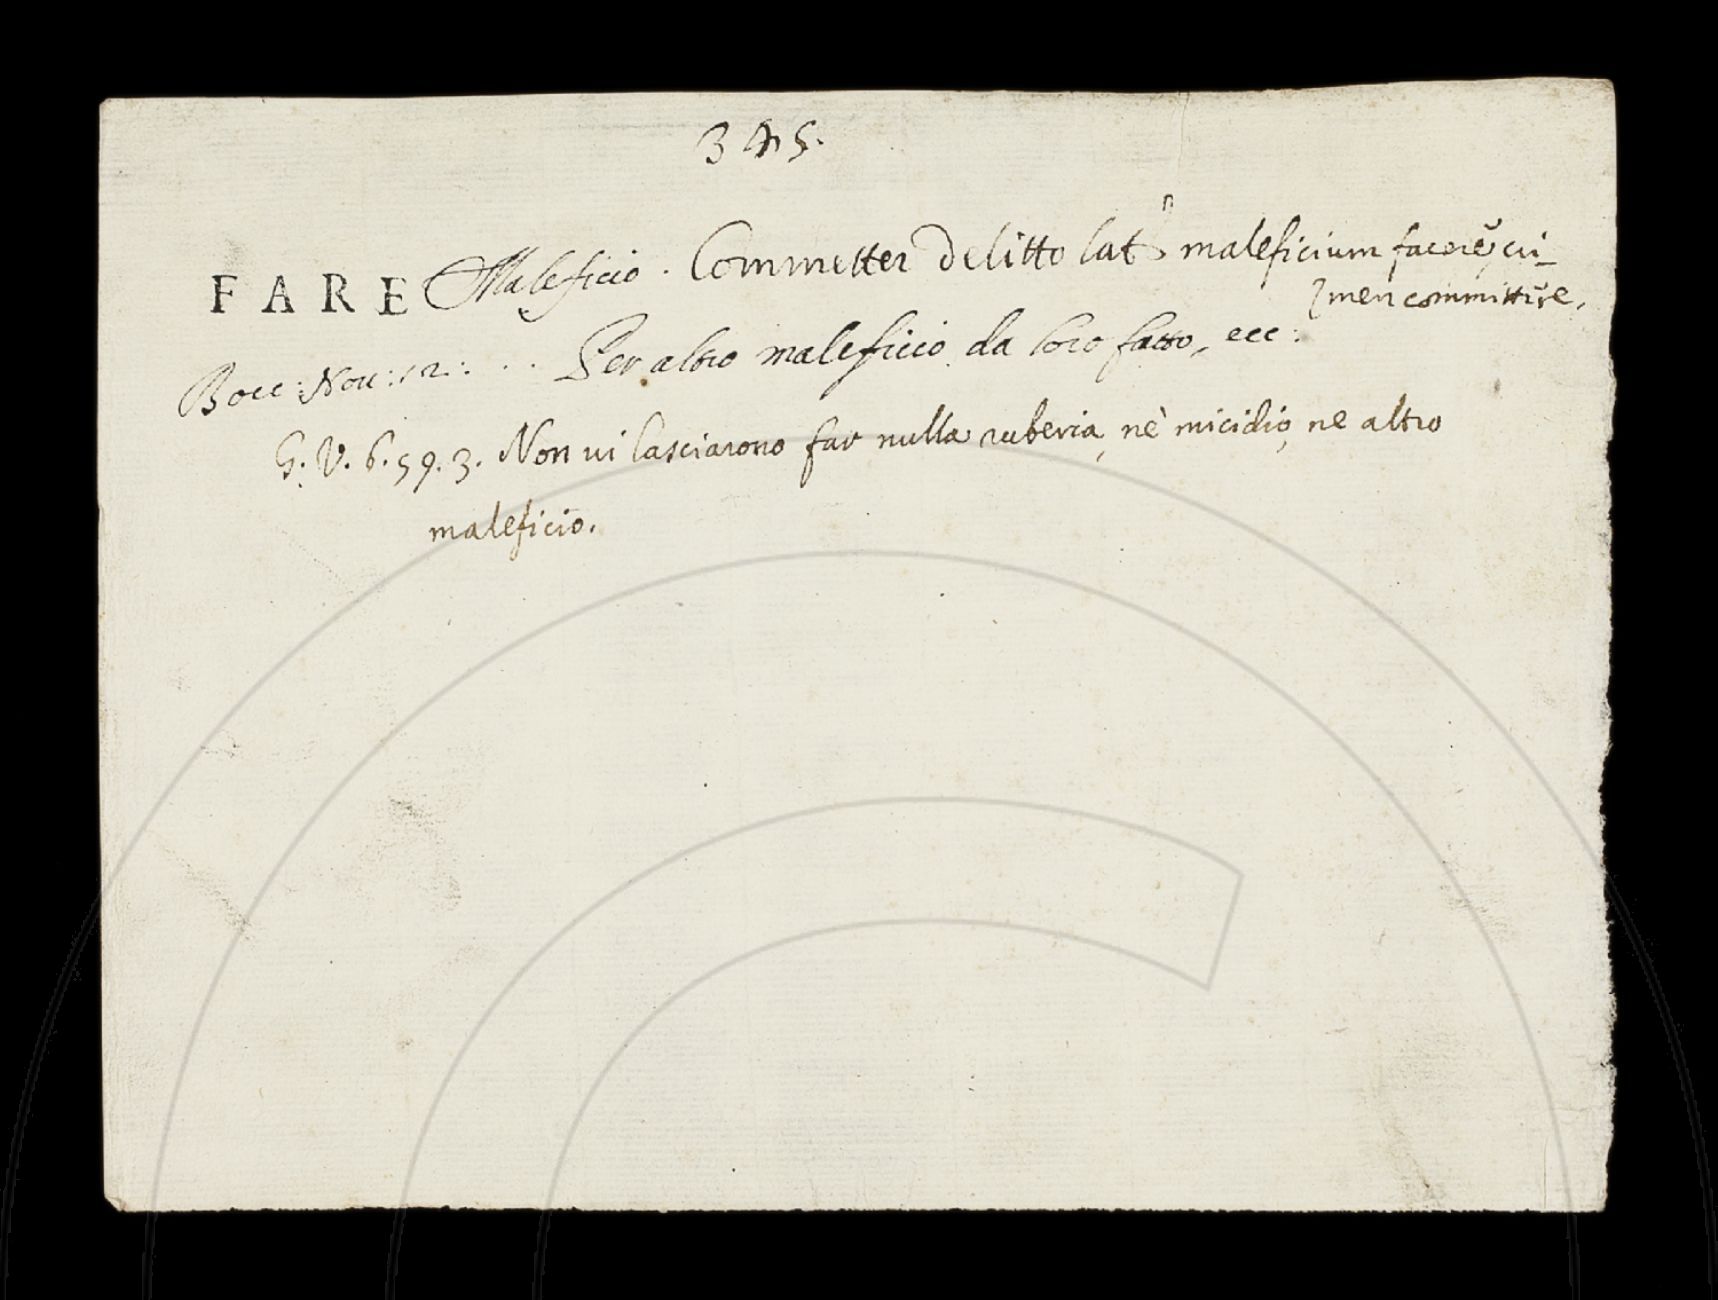 345.
FARE Maleficio. Commetter Delitto lat maleficium facere, cri-
men committere.
Bocc: Nou: 12: . . Per altro maleficio da loro fatto, ecc:
G. V. 6. 59. 3. Non ui lasciarono far nulla ruberia, nè micidio, ne altro
maleficio.